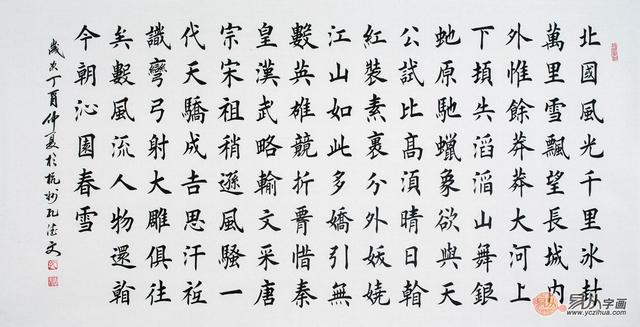 北國風光千里冰封
萬里雪飄望長城內
外惟餘莽莽大河上
下頓失滔滔山舞銀
蛇原馳蠟象欲與天
公試比高須晴日看
紅裝素裹分外妖嬈
江山如此多嬌引無
數英雄競折腰惜秦
皇漢武略輸文采唐
宗宋祖稍遜風騷一
代天驕成吉思汗祗
識彎弓射大雕俱往
矣數風流人物還看
今朝沁園春雪
歲次丁酉仲夏於杭州孔
易从字画
www.yczihua.com